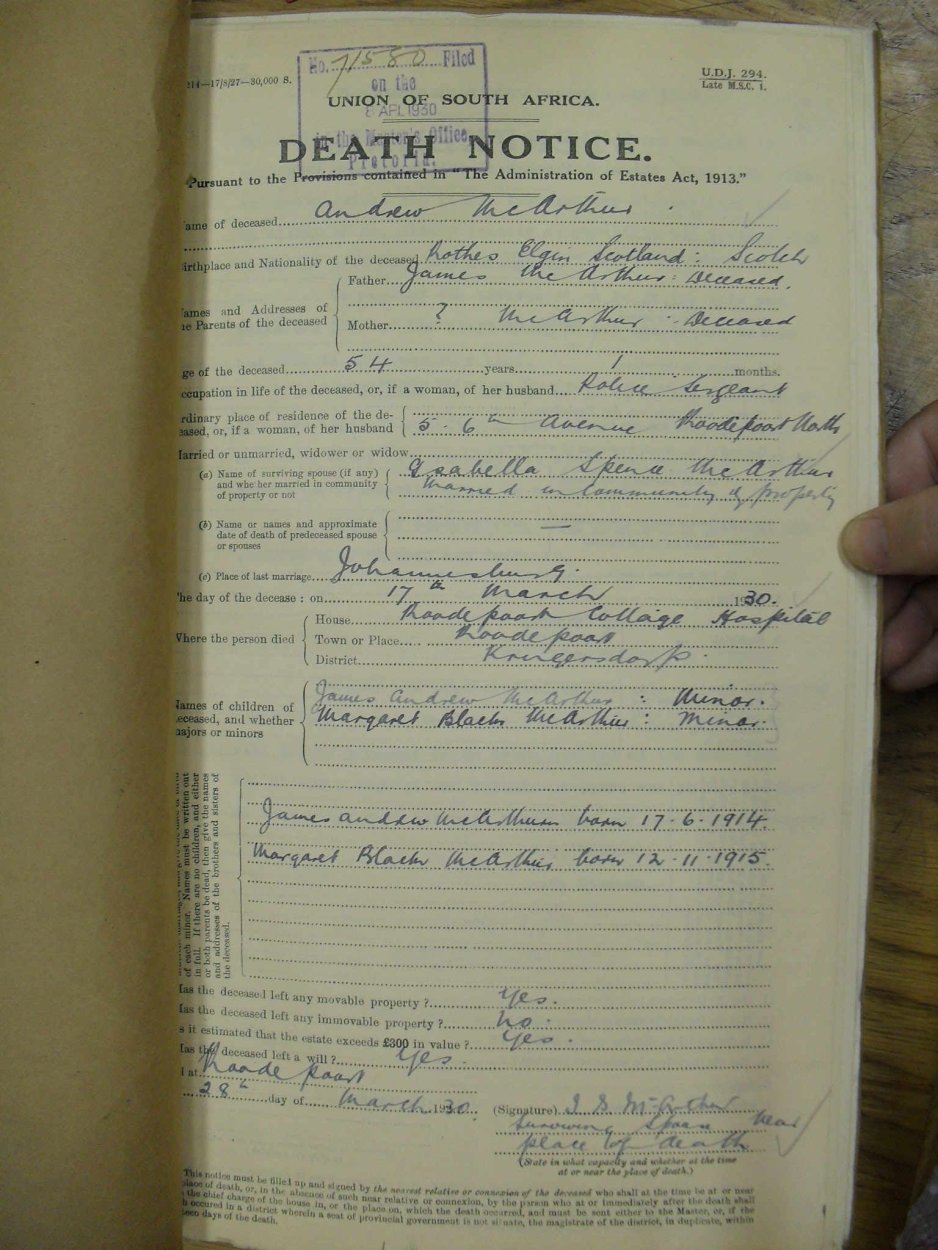 214—17/8/27—30,000 S.
U.D.J. 294.
Late M.S.C. 1.
No. 71580 Filed
on the
8 APL 1930
in the Master's Office
Pretoria.
UNION OF SOUTH AFRICA.
DEATH NOTICE.
Pursuant to the Provisions contained in "The Administration of Estates Act, 1913."
ame of deceased Andrew McArthur.
Birthplace and Nationality of the deceased Rothes Elgin Scotland: Scotch
ames and Addresses of
he Parents of the deceased
Father James McArthur: Deceased.
Mother ? McArthur: Deceased
ge of the deceased 54 years 1 months.
ccupation in life of the deceased, or, if a woman, of her husband Police Sergeant
rdinary place of residence of the de-
eased, or, if a woman, of her husband
5. 6th Avenue Roodepoort North
Married or unmarried, widower or widow
(a) Name of surviving spouse (if any)
and whether married in community
of property or not
Isabella Spence McArthur
Married in Community of property
(b) Name or names and approximate
date of death of predeceased spouse
or spouses
—
(c) Place of last marriage Johannesburg.
The day of the decease : on 17th March 1930.
Where the person died
House Roodepoort Cottage Hospital
Town or Place Roodepoort
District Krugersdorp.
Names of children of
deceased, and whether
majors or minors
James Andrew McArthur : Minor.
Margaret Black McArthur : Minor.
of each minor. Names must be written out
in full. If there are no children, and either
or both parents be dead, then give the names
and addresses of the brothers and sisters of
the deceased.
James Andrew McArthur born 17.6.1914.
Margaret Black McArthur born 12.11.1915.
Has the deceased left any movable property ? Yes.
Has the deceased left any immovable property ? No.
s it estimated that the estate exceeds £300 in value ? Yes.
Has the deceased left a will ? Yes.
l at Roodepoort
28th day of March 1930.
(Signature) I S McArthur
Surviving Spouse Near
place of death
(State in what capacity and whether at the time
at or near the place of death.)
This notice must be filled up and signed by the nearest relative or connexion of the deceased who shall at the time be at or near
place of death, or, in the absence of such near relative or connexion, by the person who at or immediately after the death shall
the chief charge of the house in, or the place on, which the death occurred, and must be sent either to the Master, or, if the
h occurred in a district wherein a seat of provincial government is not situate, the magistrate of the district, in duplicate, within
teen days of the death.